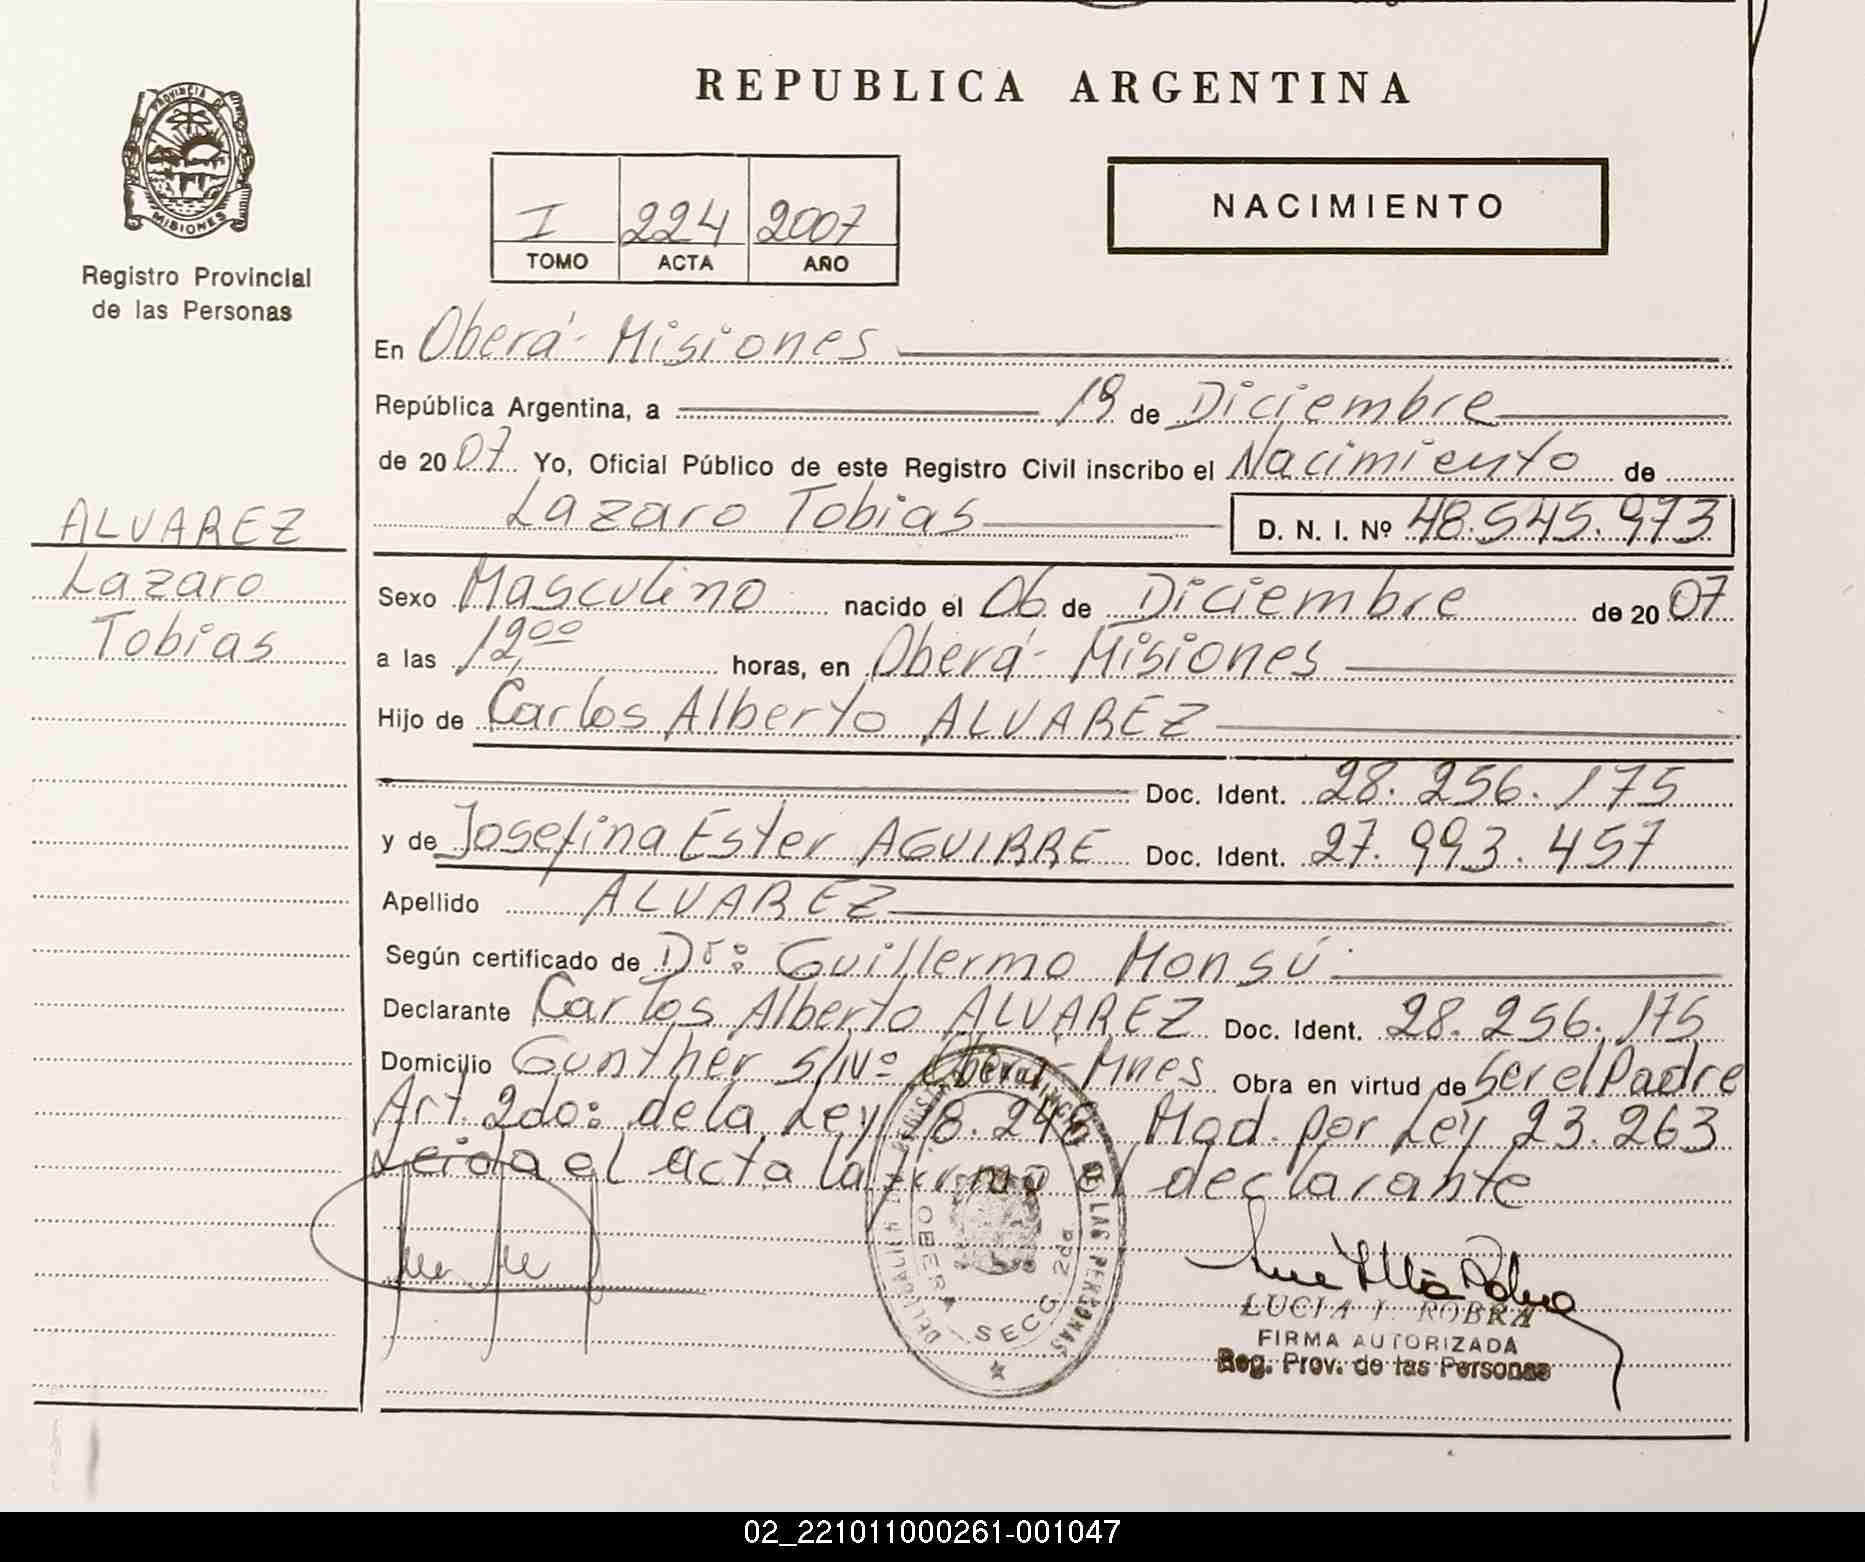 REPUBLICA ARGENTINA
PROVINCIA DE
MISIONES
Registro Provincial
de las Personas
I 224 2007
TOMO ACTA AÑO
NACIMIENTO
En Oberá - Misiones
República Argentina, a 19 de Diciembre
de 2007 Yo, Oficial Público de este Registro Civil inscribo el Nacimiento de
Lazaro Tobias D. N. I. Nº 48.545.973
ALVAREZ
Lazaro
Tobias
Sexo Masculino nacido el 06 de Diciembre de 2007
a las 12,00 horas, en Oberá - Misiones
Hijo de Carlos Alberto ALVAREZ
Doc. Ident. 28.256.175
y de Josefina Ester AGUIRRE Doc. Ident. 27.993.457
Apellido ALVAREZ
Según certificado de Dr: Guillermo Monsú
Declarante Carlos Alberto ALVAREZ Doc. Ident. 28.256.175
Domicilio Gunther S/Nº Oberá - Mnes Obra en virtud de Ser el Padre
Art. 2do: de la Ley 18.248 Mod. por Ley 23.263
Leida el acta la firma el declarante
OBERA SECC 2da
DE LAS PERSONAS
LUCIA I. ROBRA
FIRMA AUTORIZADA
Reg. Prov. de las Personas
02_221011000261-001047